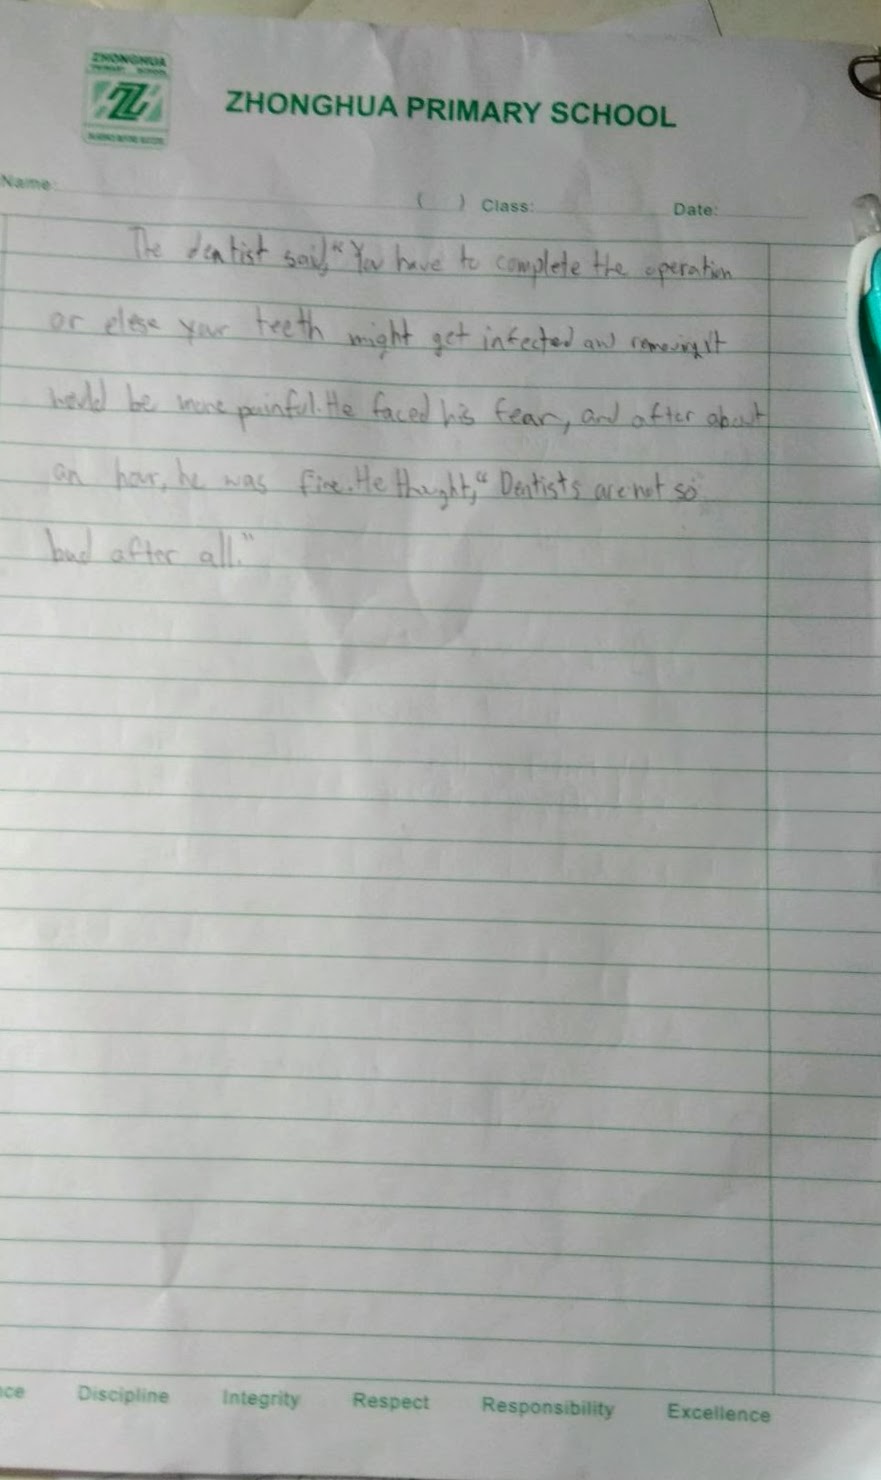 ZHONGHUA
PRIMARY SCHOOL
ZHONGHUA PRIMARY SCHOOL
Name:
( ) Class:
Date:
The dentist said, “You have to complete the operation
or elese your teeth might get infected and removing it
be more painful. He faced his fear, and after about
an hour, he was fine. He thought, “Dentists are not so
bad after all.”
Discipline Integrity Respect Responsibility Excellence